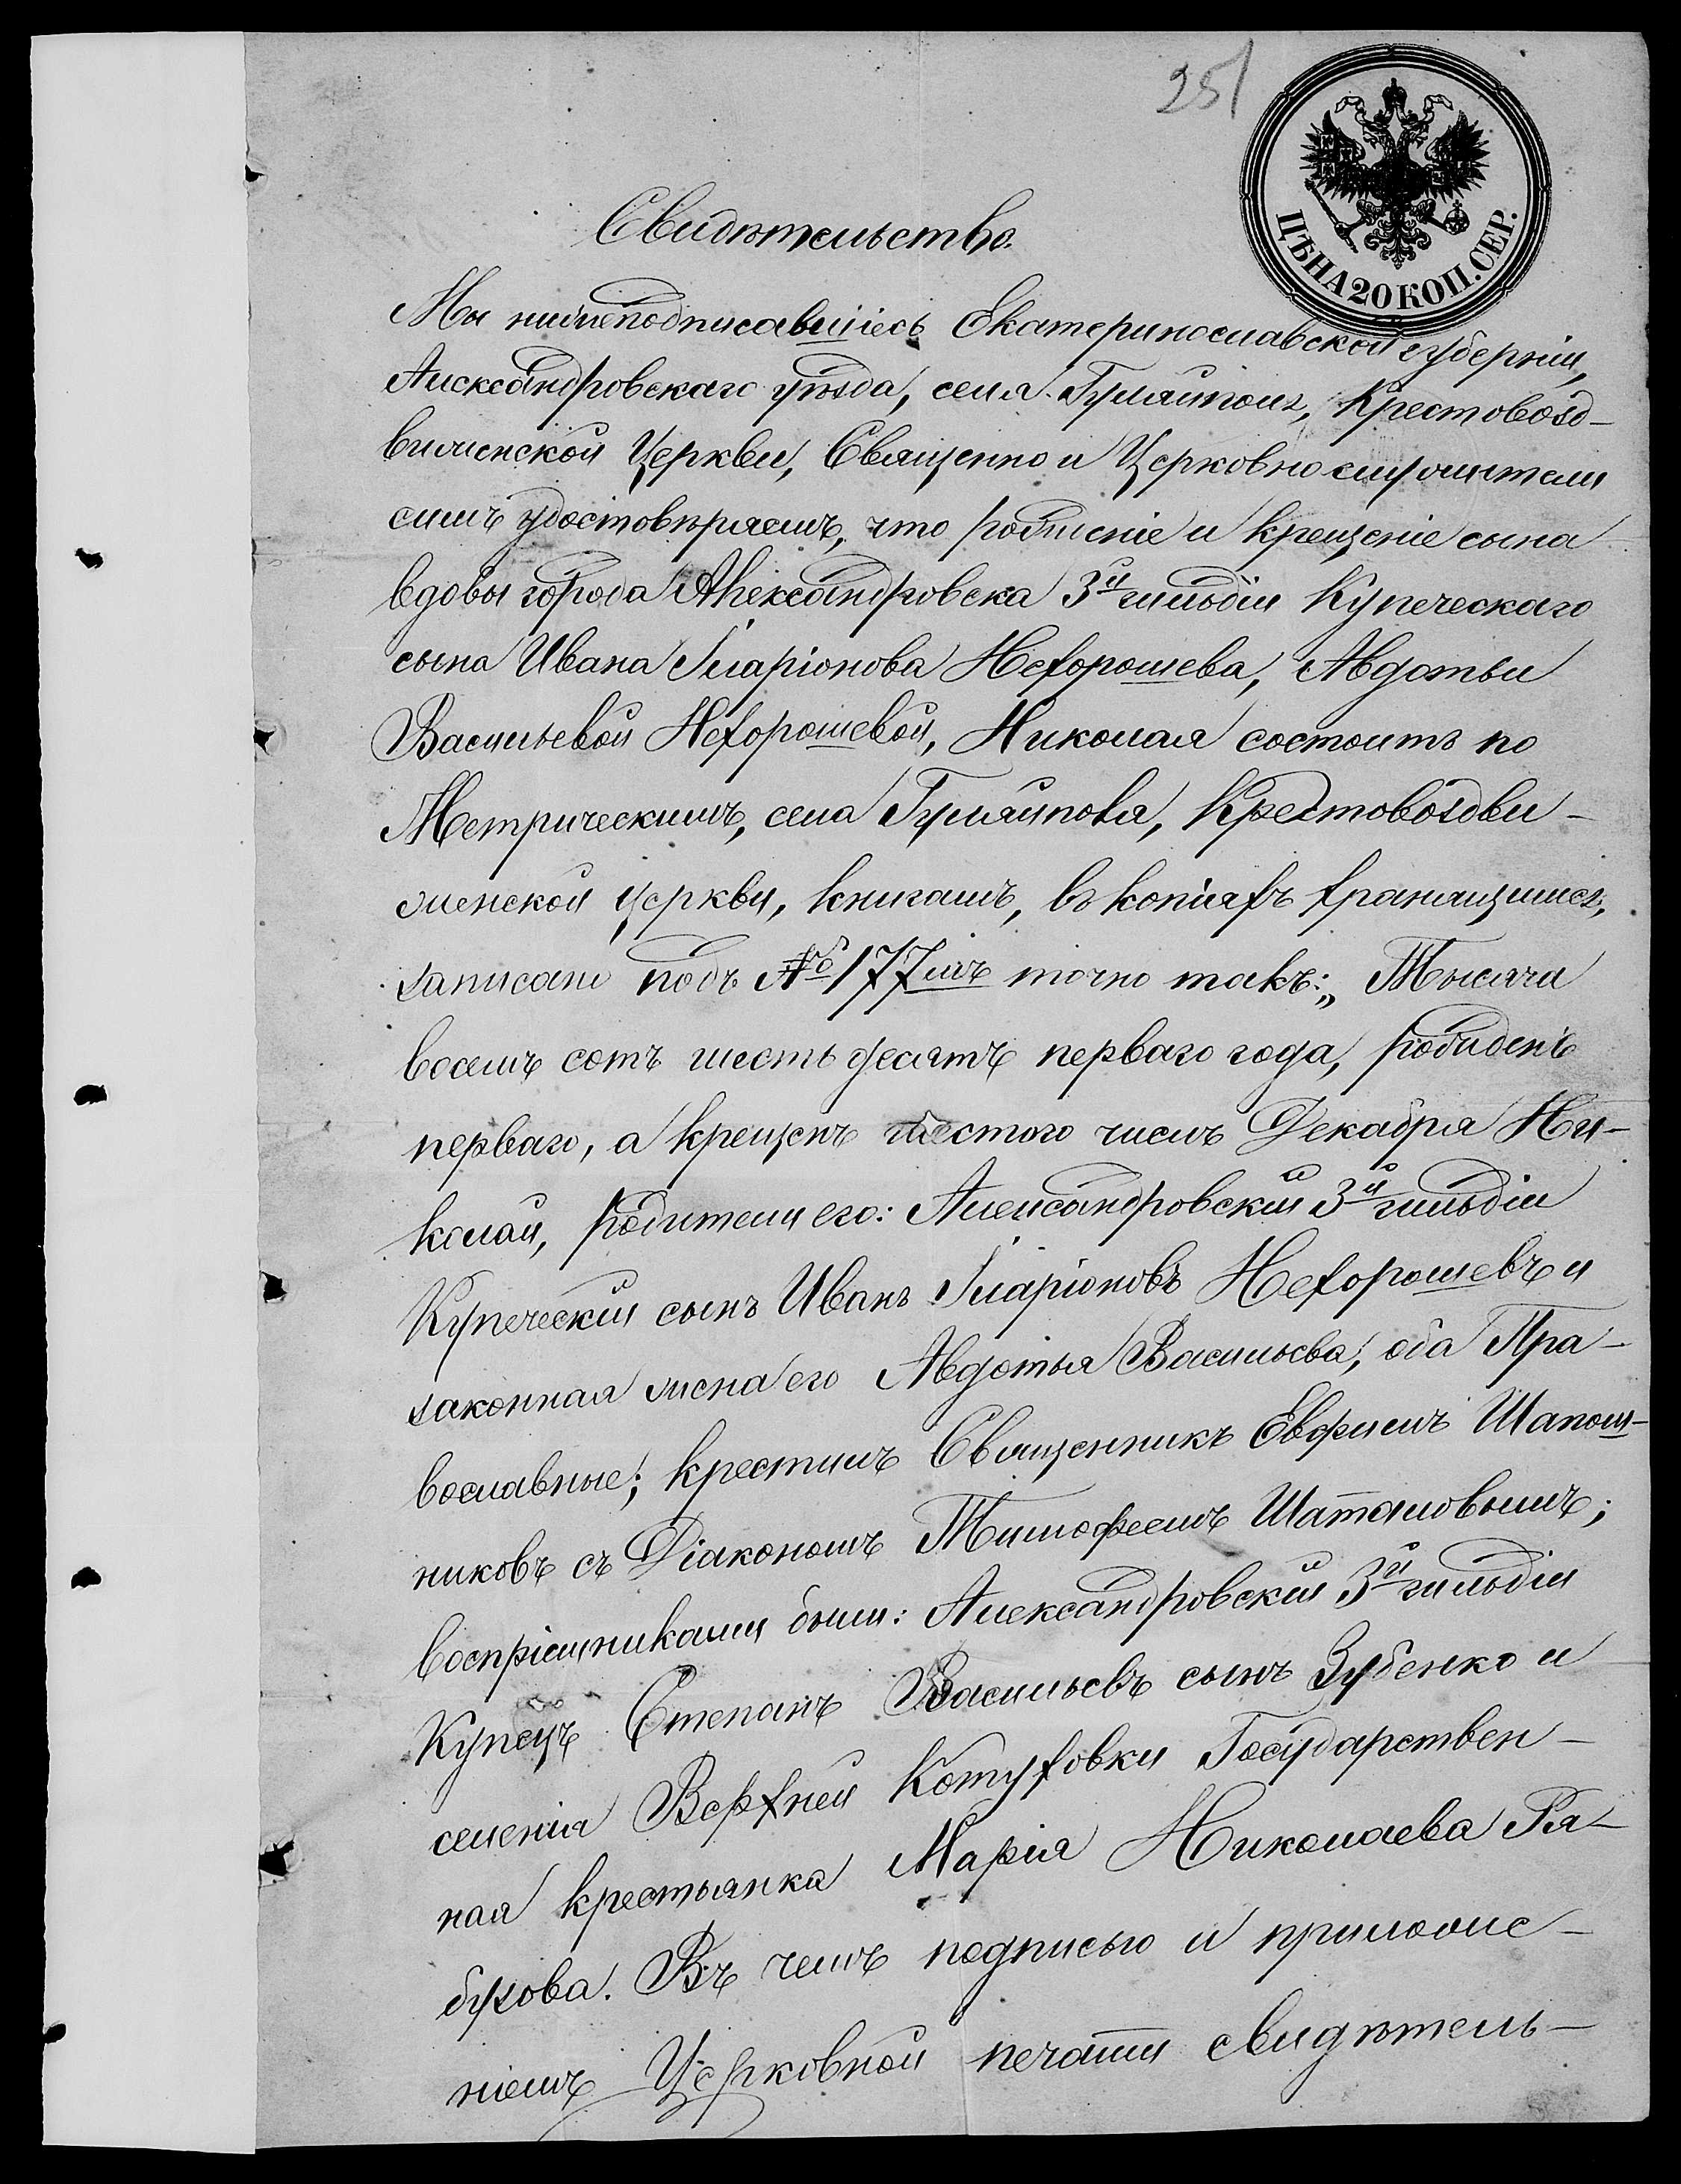 251
ЦѢНА 20 КОП. СЕР.
Свидѣтельство.
Мы нижеподписавшіесь Екатеринославской губерніи,
Александровскаго уѣзда, села Гуляйполь, Крестовозд-
виженской Церкви, Священно и Церковно служители
симъ удостовѣряемъ, что рожденіе и крещеніе сына
вдовы города Александровска 3й гильдіи Купеческаго
сына Ивана Иларіонова Нехорошева, Авдотьи
Васильевой Нехорошевой, Николая состоитъ по
Метрическимъ, села Гуляйполя, Крестовоздви-
женской церкви, книгамъ, въ копіяхъ хранящимся,
записано подъ № 177мъ точно такъ: „Тысяча
восемь сотъ шесть десятъ перваго года, рожденъ
перваго, а крещенъ шестого числъ Декабря Ни-
колай, родители его: Александровскій 3й гильдіи
Купеческій сынъ Иванъ Иларіоновъ Нехорошевъ и
законная жена его Авдотья Васильева, оба Пра-
вославные; крестилъ Священникъ Евфимъ Шапош-
никовъ съ Діакономъ Тимофеемъ Шаталовымъ;
воспріемниками были: Александровскій 3й гильдіи
Купецъ Степанъ Васильевъ сынъ Зубенко и
селенія Верхней Котуховки Государствен-
ная крестьянка Марія Николаева Ря-
бухова. Въ чемъ подписью и приложе-
ніемъ Церковной печати свидѣтель-